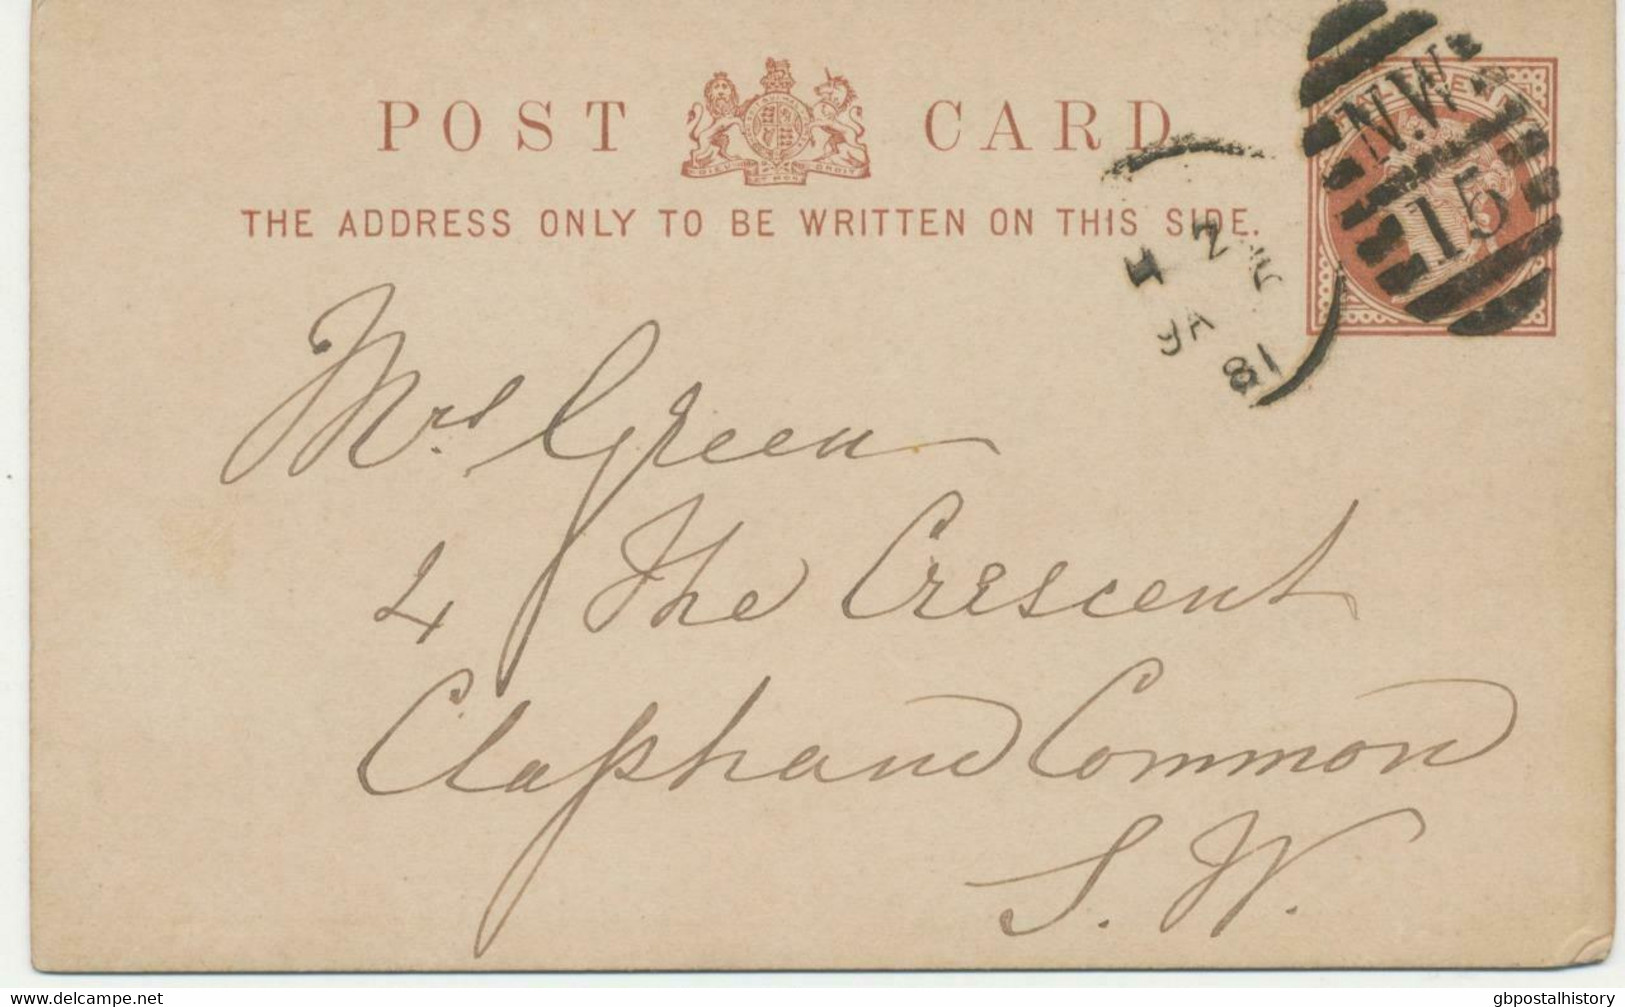 POST CARD
THE ADDRESS ONLY TO BE WRITTEN ON THIS SIDE.
N.W.
15
81
Mrs Green
4 The Crescent
Clapham Common
S. W.
www.delcampe.net
gbpostalhistory